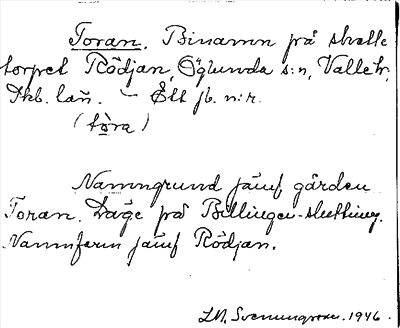 Toran. Binamn på skatte
torpet Rödjan, Öglunda s:n, Valle hd,
Skb. län. — Ett jb. n:r.
(tòra)
Namngrund jämf gården
Toran. Läge på Billingen-sluttning.
Namnform jämf Rödjan.
1946.